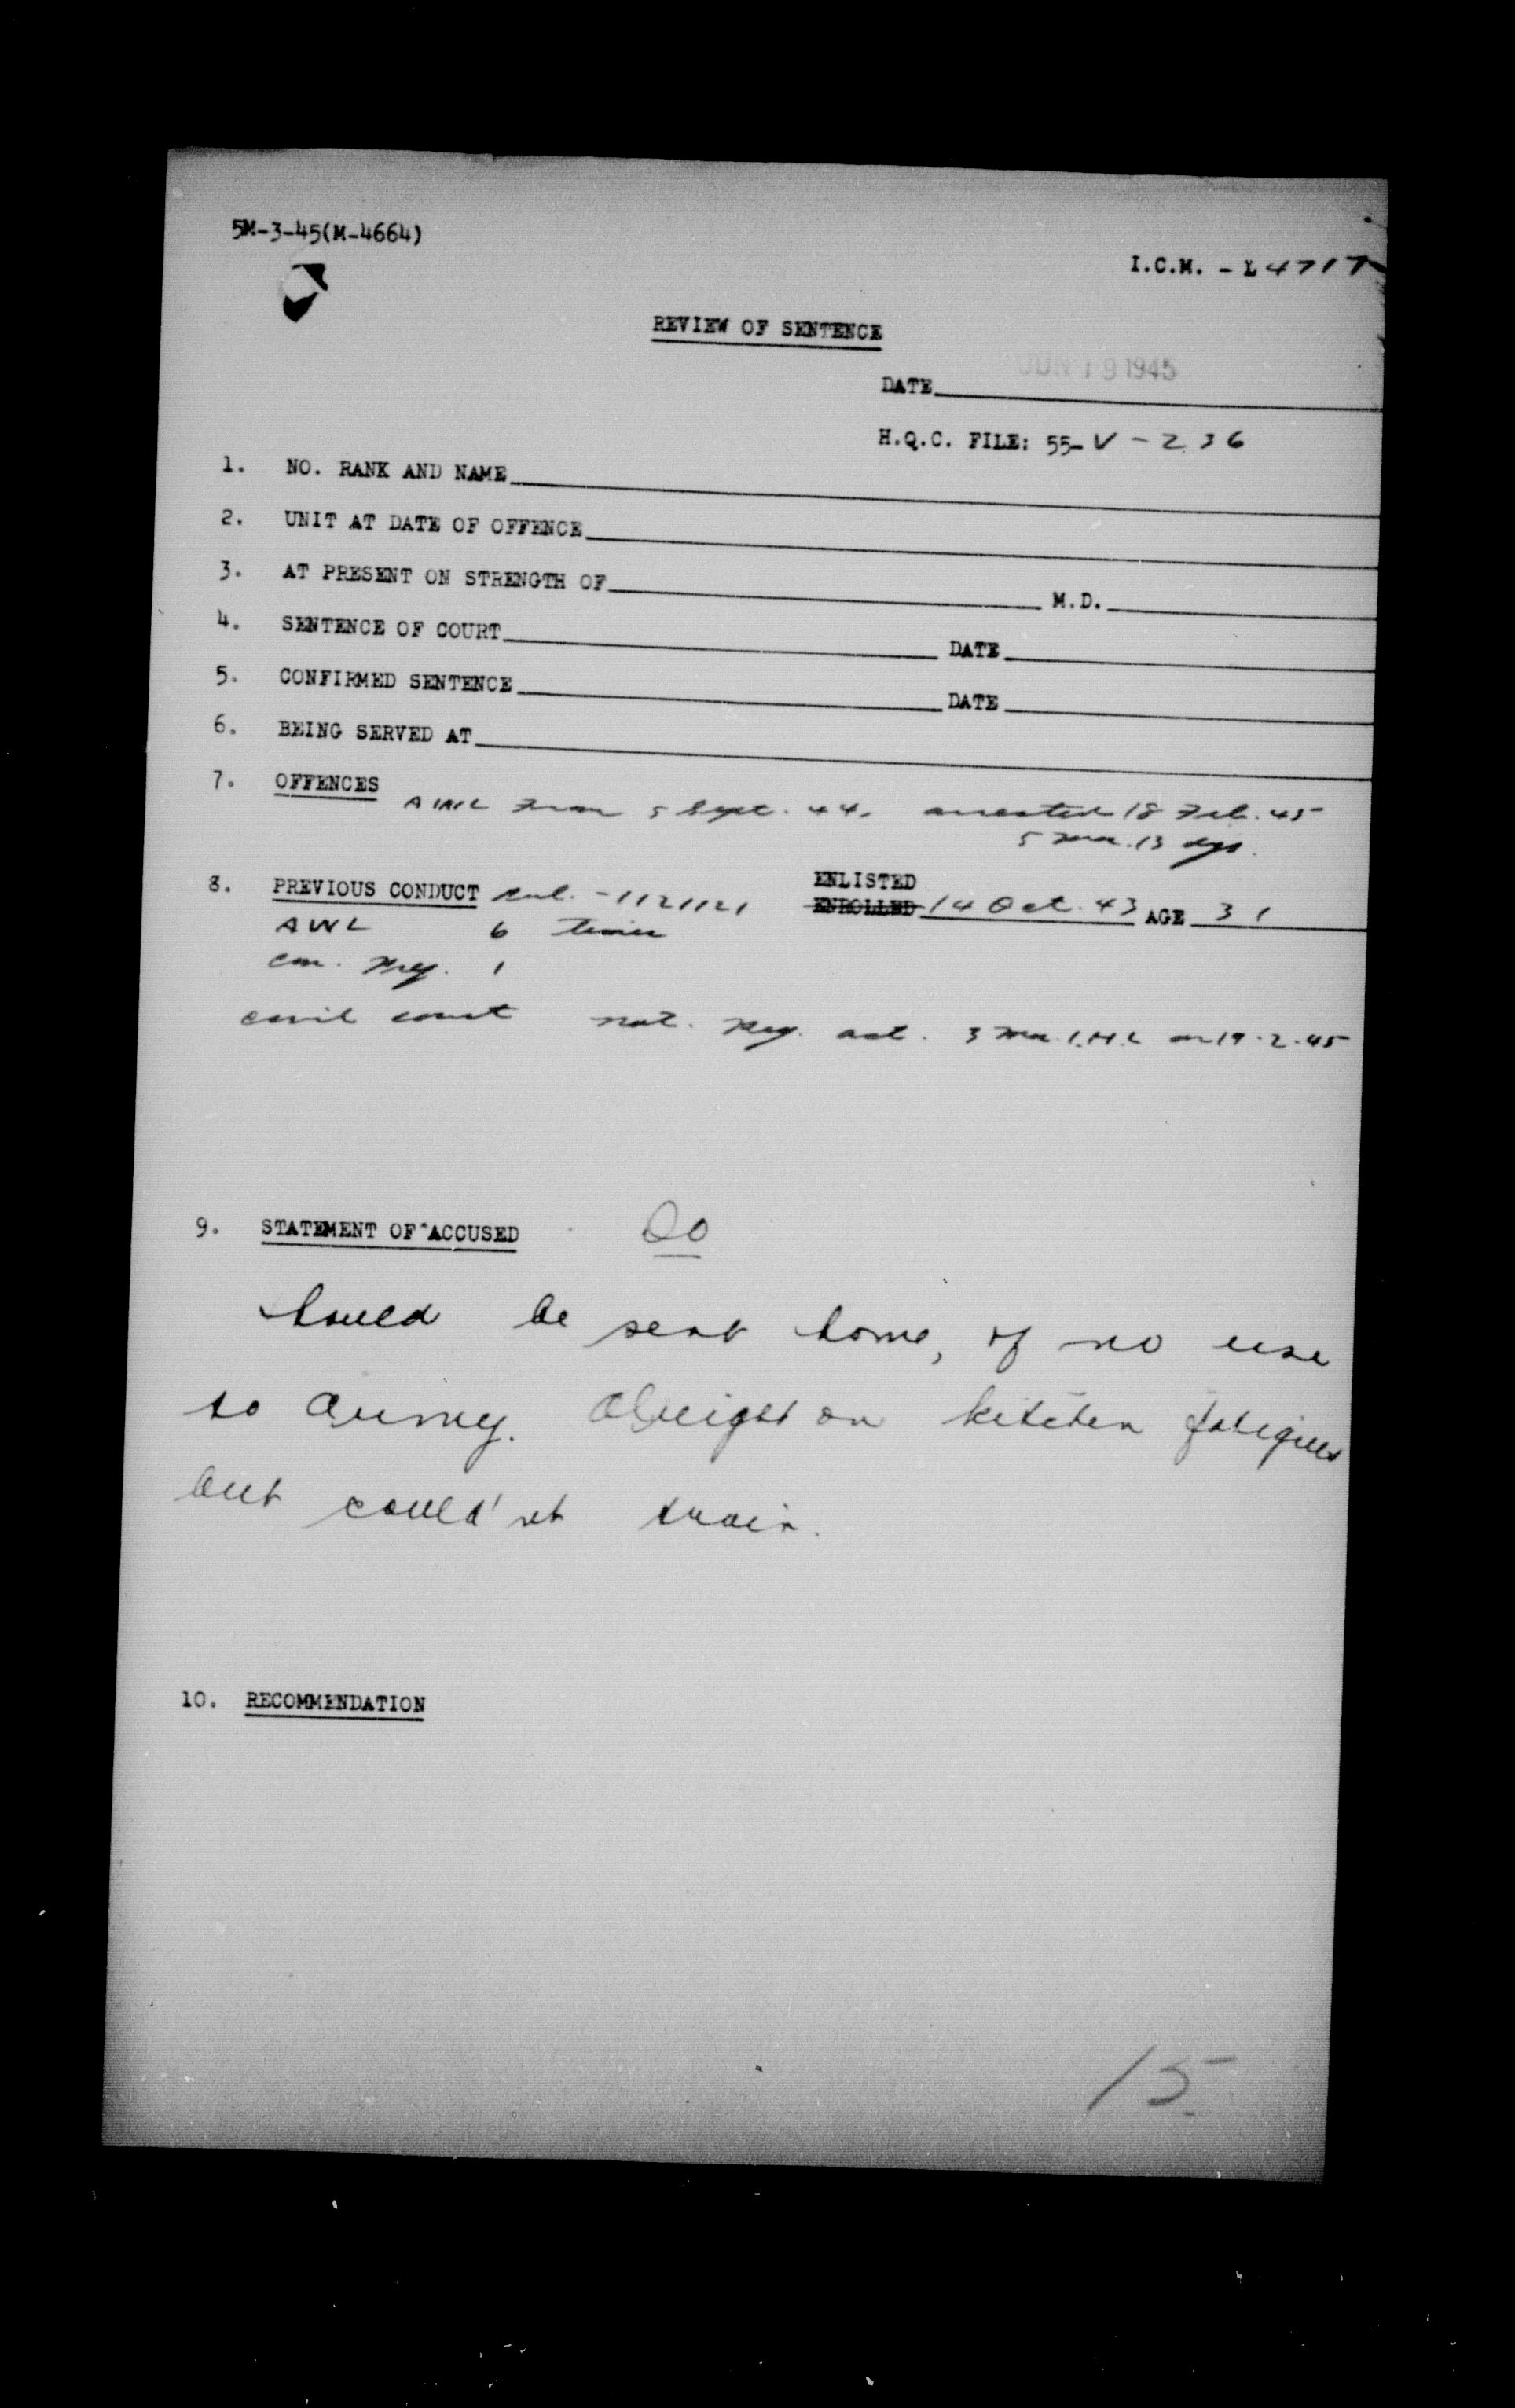 5M-3-45(M-4664)
I.C.M. - L 4717
REVIEW OF SENTENCE
DATE JUN 19 1945
H.Q.C. FILE: 55-V-236
1. NO. RANK AND NAME
2. UNIT AT DATE OF OFFENCE
3. AT PRESENT ON STRENGTH OF M.D.
4. SENTENCE OF COURT DATE
5. CONFIRMED SENTENCE DATE
6. BEING SERVED AT
7. OFFENCES
AWL from 5 Sept. 44. arrested 18 Feb. 45
5 mo. 13 dys.
ENLISTED
8. PREVIOUS CONDUCT Pul. - 1121121 ENROLLED 14 Oct. 43 AGE 31
AWL 6 times
con. Neg. 1
civil court nat. Reg. act. 3 mo. I.H.L on 19.2.45
9. STATEMENT OF ACCUSED
should be sent home, of no use
to army. Alright on kitchen fatigues
but could'nt train.
10. RECOMMENDATION
15